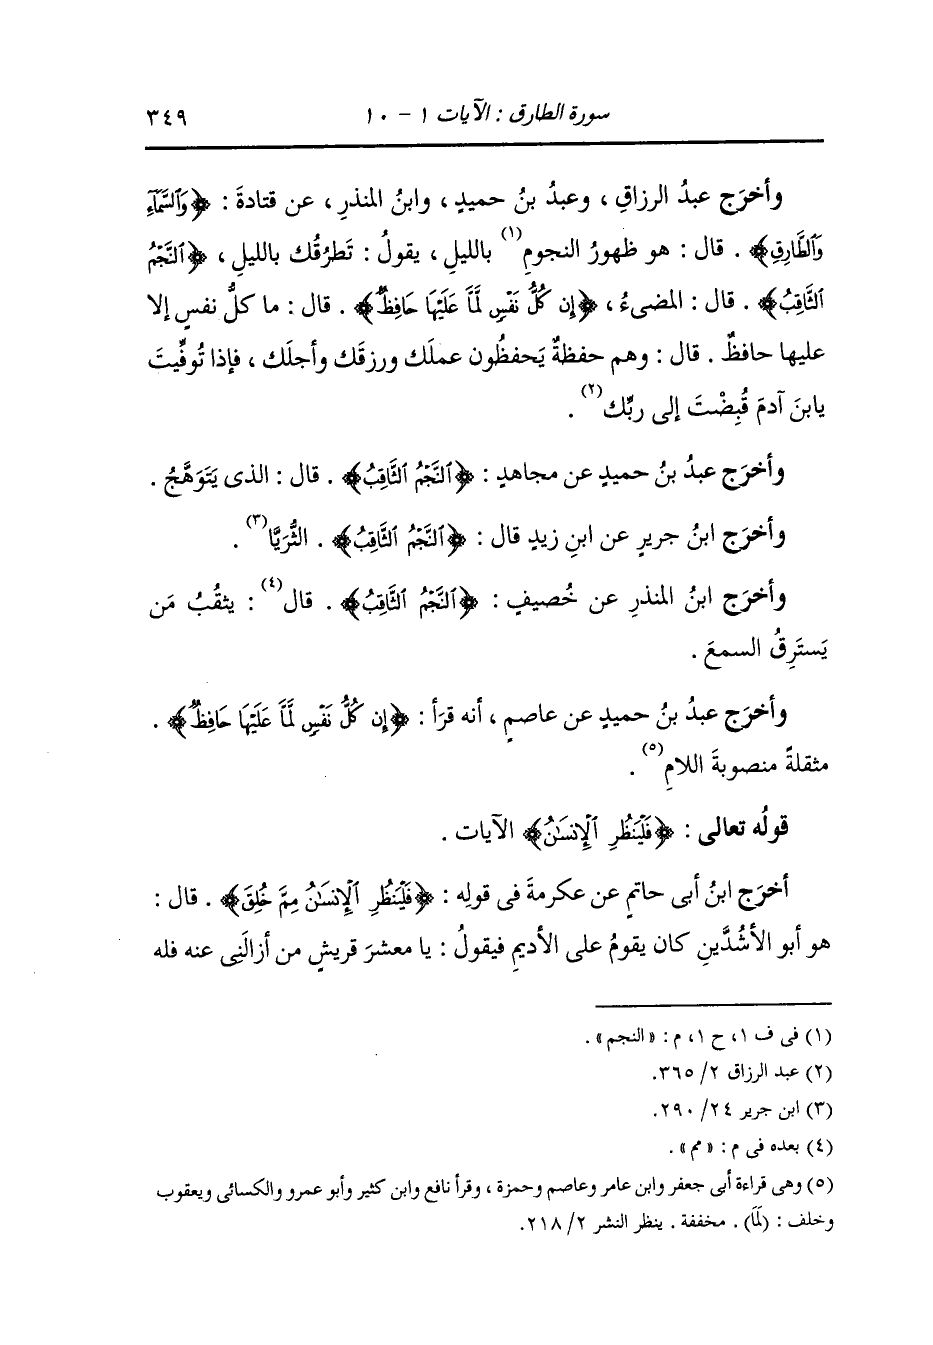 سورة الطارق : الآيات ١ - ١٠ ٣٤٩
وأخرَج عبدُ الرزاقِ ، وعبدُ بنُ حميدٍ ، وابنُ المنذرِ ، عن قتادةَ : ﴿وَٱلسَّمَآءِ
وَٱلطَّارِقِ﴾ . قال : هو ظهورُ النجومِ(١) بالليلِ ، يقولُ : تَطرُقُك بالليلِ ، ﴿ٱلنَّجْمُ
ٱلثَّاقِبُ﴾ . قال : المضىءُ ، ﴿إِن كُلُّ نَفْسٍ لَّمَّا عَلَيْهَا حَافِظٌ﴾ . قال : ما كلُّ نفسٍ إلا
عليها حافظٌ . قال : وهم حفظةٌ يَحفظُون عملَك ورزقَك وأجلَك ، فإذا تُوفِّيتَ
يابنَ آدمَ قُبِضْتَ إلى ربِّك(٢) .
وأخرَج عبدُ بنُ حميدٍ عن مجاهدٍ : ﴿ٱلنَّجْمُ ٱلثَّاقِبُ﴾ . قال : الذى يَتَوَهَّجُ .
وأخرَج ابنُ جريرٍ عن ابنِ زيدٍ قال : ﴿ٱلنَّجْمُ ٱلثَّاقِبُ﴾ . الثُّرَيَّا(٣) .
وأخرَج ابنُ المنذرِ عن خُصيفٍ : ﴿ٱلنَّجْمُ ٱلثَّاقِبُ﴾ . قال(٤) : يثقُبُ مَن
يَستَرِقُ السمعَ .
وأخرَج عبدُ بنُ حميدٍ عن عاصمٍ ، أنه قرَأ : ﴿إِن كُلُّ نَفْسٍ لَّمَّا عَلَيْهَا حَافِظٌ﴾ .
مثقلةً منصوبةَ اللامِ(٥) .
قولُه تعالى : ﴿فَلْيَنظُرِ ٱلْإِنسَٰنُ﴾ الآيات .
أخرَج ابنُ أبى حاتمٍ عن عكرمةَ فى قولِه : ﴿فَلْيَنظُرِ ٱلْإِنسَٰنُ مِمَّ خُلِقَ﴾ . قال :
هو أبو الأشُدَّينِ كان يقومُ على الأديمِ فيقولُ : يا معشرَ قريشٍ من أزالَنِى عنه فله
(١) فى ف ١، ح ١، م : « النجم » .
(٢) عبد الرزاق ٢/ ٣٦٥.
(٣) ابن جرير ٢٤/ ٢٩٠.
(٤) بعده فى م : « مم » .
(٥) وهى قراءة أبى جعفر وابن عامر وعاصم وحمزة ، وقرأ نافع وابن كثير وأبو عمرو والكسائى ويعقوب
وخلف : (لَمَا) . مخففة . ينظر النشر ٢/ ٢١٨.